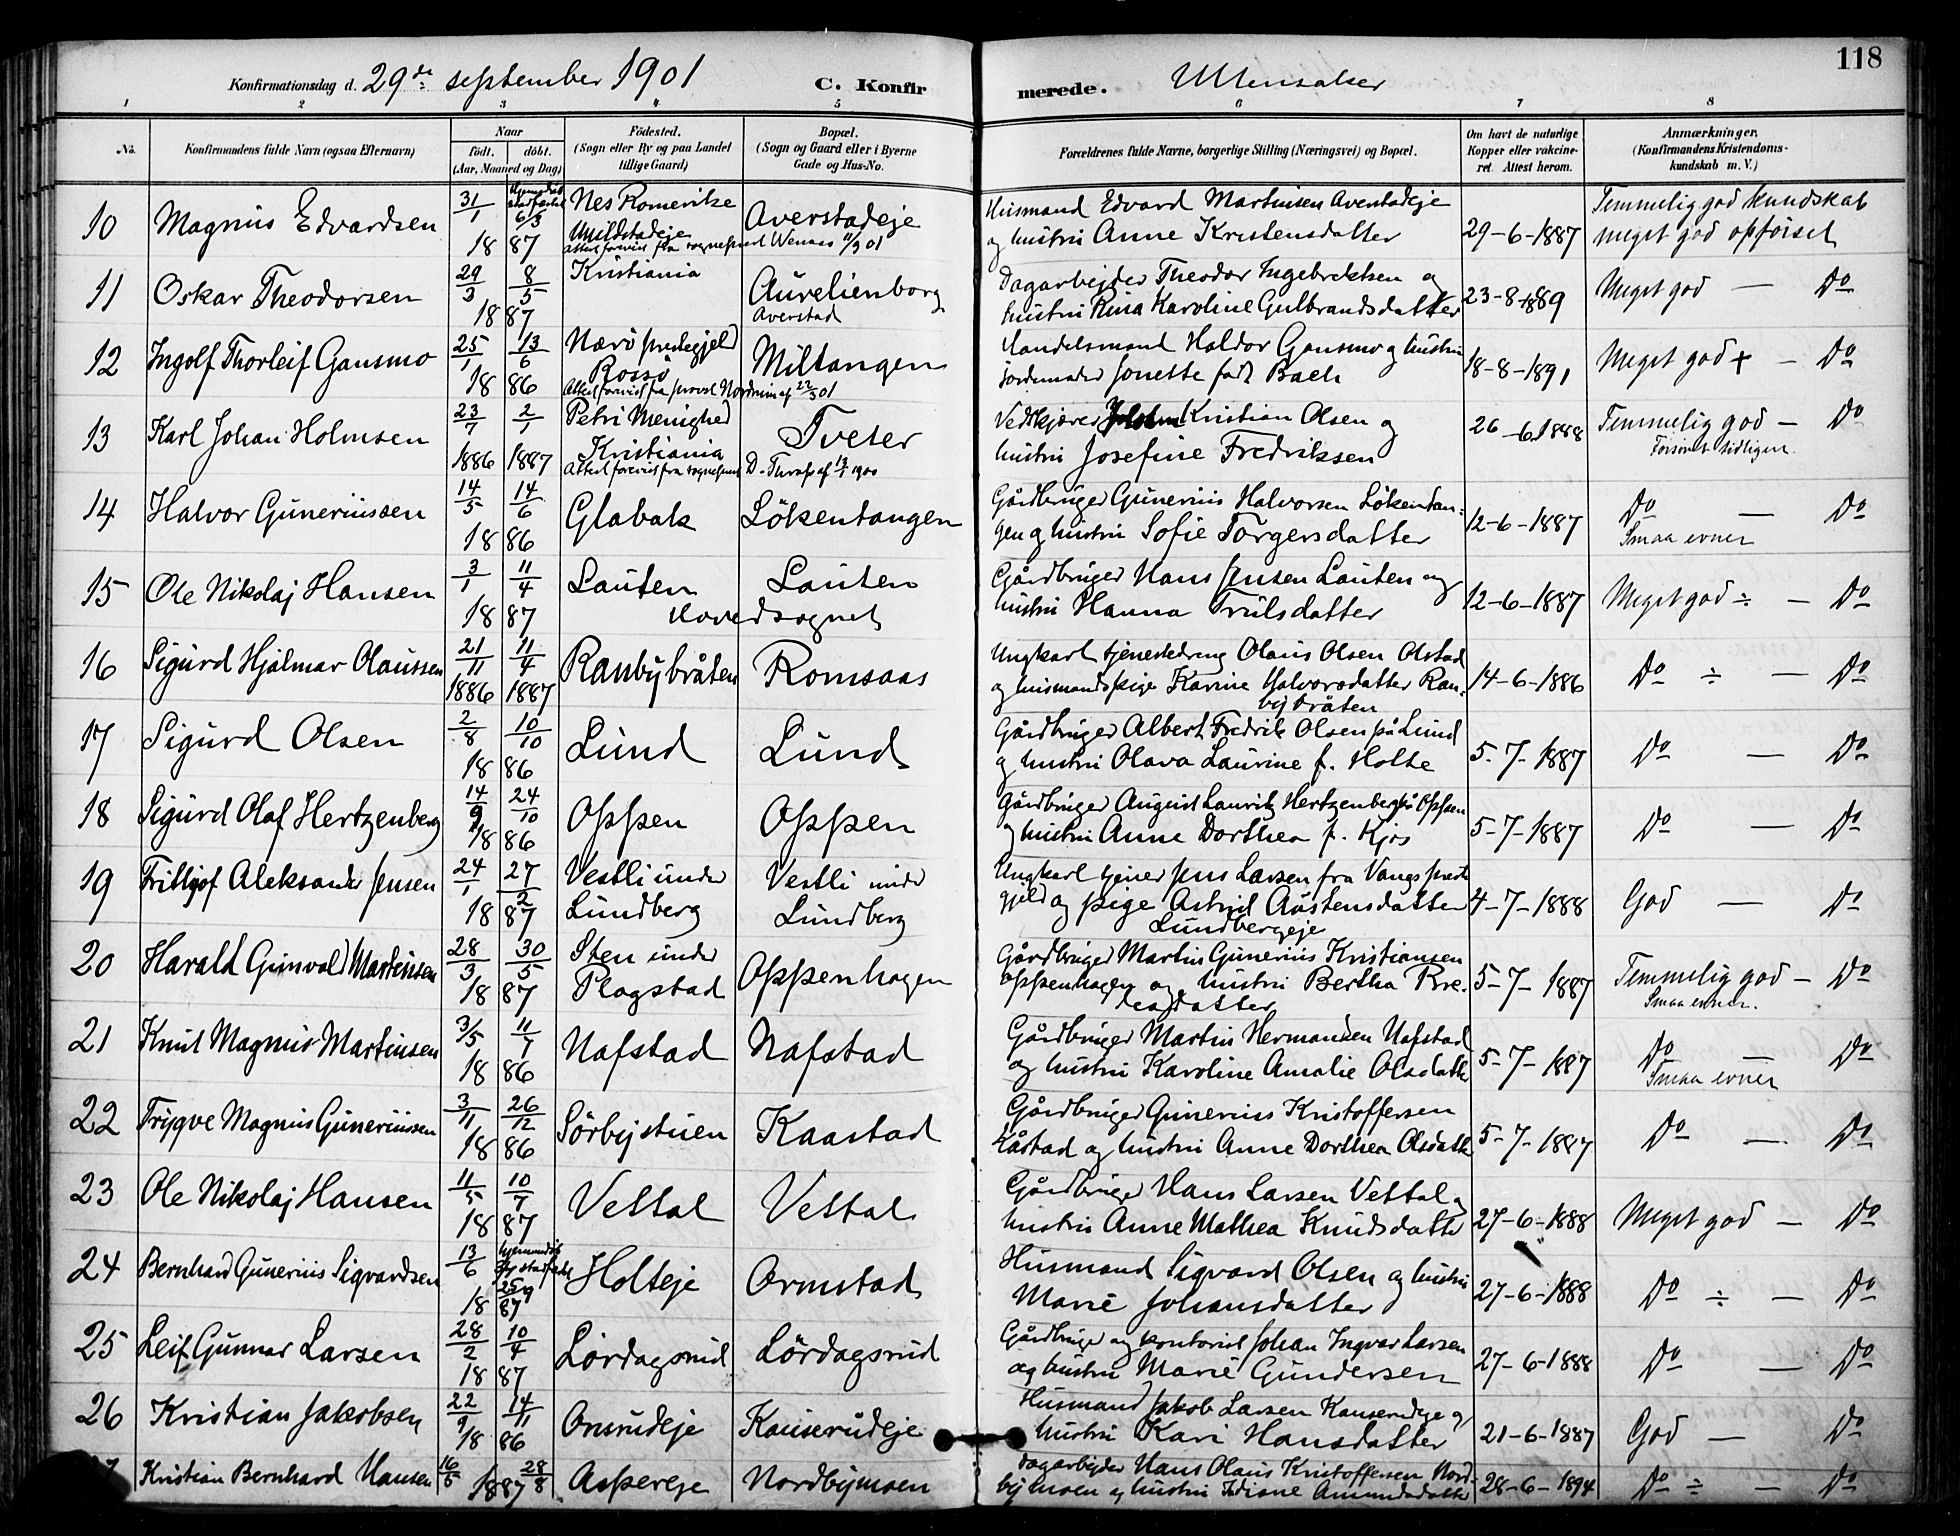 118
Konfirmationsdag d. 29de september 1901 C. Konfir merede. Ullensaker
1 2 3 4 5 6 7 8
No. Konfirmandens fulde Navn (ogsaa Efternavn) Naar födt. döbt. (Aar, Maaned og Dag) Födested. (Sogn eller By og paa Landet tillige Gaard) Bopæl. (Sogn og Gaard eller i Byerne Gade og Hus-No. Forældrenes fulde Navne, borgerlige Stilling (Næringsvei) og Bopæl. Om havt de naturlige Kopper eller vakcineret. Attest herom. Anmærkninger. (Konfirmandens Kristendomskundskab m. V.)
10 Magnus Edvardsen 31/1 18 87 hjemmedöbt 6/3 Nes Romerike Averstadeje Husmand Edvard Martinsen Averstadeje
og hustru Anne Kristensdatter 29-6-1887 Temmelig god kundskab meget god opförsel
Attest forevist fra sogneprest Wenaas 11/9 01
11 Oskar Theodorsen 29/3 8/5 18 87 Kristiania Aurelienborg Averstad Dagarbejder Theodor Ingebrektsen og
hustru Rina Karoline Gulbrandsdatter 23-8-1889 Meget god — Do
12 Ingolf Thorleif Gansmo 25/1 13/6 18 86 Nærö prestegjeld Rossö Miltangen Handelsmand Haldor Gansmo og hustru
Jordemoder Jonette födt Bach 18-8-1891 Meget god + — Do
Attest forevist fra provst Nordrum af 22/5 01
13 Karl Johan Holmsen 23/7 1886 2/1 1887 Petri Menighed Kristiania Tveter Vedskjører Kristian Olsen og
hustru Josefine Fredriksen 26-6-1888 Temmelig god — Do
Attest forevist fra sogneprest D. Thrap af 13/1 1900 Forsömt tidligere.
14 Halvor Guneriussen 14/5 14/6 18 86 Glabak Lökentangen Gårdbruger Gunerius Halvorsen Lökentan-
gen og hustru Sofie Torgersdatter 12-6-1887 Do — Do
Smaa evner
15 Ole Nikolaj Hansen 3/1 11/4 18 87 Lauten Lauten Hovedsognet Gårdbruger Hans Jensen Lauten og
hustru Hanna Trulsdatter 12-6-1887 Meget god ÷ — Do
16 Sigurd Hjalmar Olaussen 21/11 1886 11/4 1887 Ranbybråten Romsaas Ungkarl tjenestedreng Olaus Olsen Olstad
og husmandspige Karine Halvorsdatter Ran-
bybråten 14-6-1886 Do ÷ — Do
17 Sigurd Olsen 2/8 10/10 18 86 Lund Lund Gårdbruger Albert Fredrik Olsen på Lund
og hustru Olava Laurine f. Holte 5-7-1887 Do — Do
18 Sigurd Olaf Hertzenberg 14/9 24/10 18 86 Oppen Oppen Gårdbruger August Lauritz Hertzenberg på Oppen
og hustru Anne Dorthea f. Kjos 5-7-1887 Do — Do
19 Frithjof Aleksander Jensen 24/1 27/2 18 87 Vestli under Lundberg Vestli under Lundberg Ungkarl tjener Jens Larsen fra Vangs prest
gjeld og pige Astrid Austensdatter
Lundbergeje 4-7-1888 God — Do
20 Harald Gunvald Martinsen 28/3 30/5 18 87 Sten under Plogstad Oppenhagen Gårdbruger Martin Gunerius Kristiansen
Oppenhagen og hustru Bertha Bre-
desdatter 5-7-1887 Temmelig god — Do
Smaa evner.
21 Knut Magnus Martinsen 3/5 11/7 18 86 Nafstad Nafstad Gårdbruger Martin Hermansen Nafstad
og hustru Karoline Amalie Olsdatter 5-7-1887 Do — Do
Smaa evner
22 Trygve Magnus Guneriussen 3/11 26/12 18 86 Sörbystuen Kaastad Gårdbruger Gunerius Kristoffersen
Kåstad og hustru Anne Dorthea Olsdatter 5-7-1887 Do — Do
23 Ole Nikolaj Hansen 11/5 10/7 18 87 Veltal Veltal Gårdbruger Hans Larsen Veltal og
hustru Anne Mathea Knudsdatter 27-6-1888 Meget god — Do
24 Bernhard Gunerius Sigvardsen 13/6 hjemmedöbt 25/9 18 87 Holteje Ormstad Husmand Sigvard Olsen og hustru
Marie Johansdatter 27-6-1888 Do ÷ — Do
25 Leif Gunnar Larsen 28/2 10/4 18 87 Lördagsrud Lördagsrud Gårdbruger og kontorist Johan Ingvar Larsen
og hustru Marie Gundersen 27-6-1888 Do — Do
26 Kristian Jakobsen 22/9 14/11 18 86 Onsrudeje Kauserudeje Husmand Jakob Larsen Kauserudeje og
hustru Kari Hansdatter 21-6-1887 God — Do
27 Kristian Bernhard Hansen 16/5 1887 28/8 Aspereje Nordbymoen Dagarbejder Hans Olaus Kristoffersen Nord-
bymoen og hustru Amundsdatter 28-6-1894 Do ÷ Do